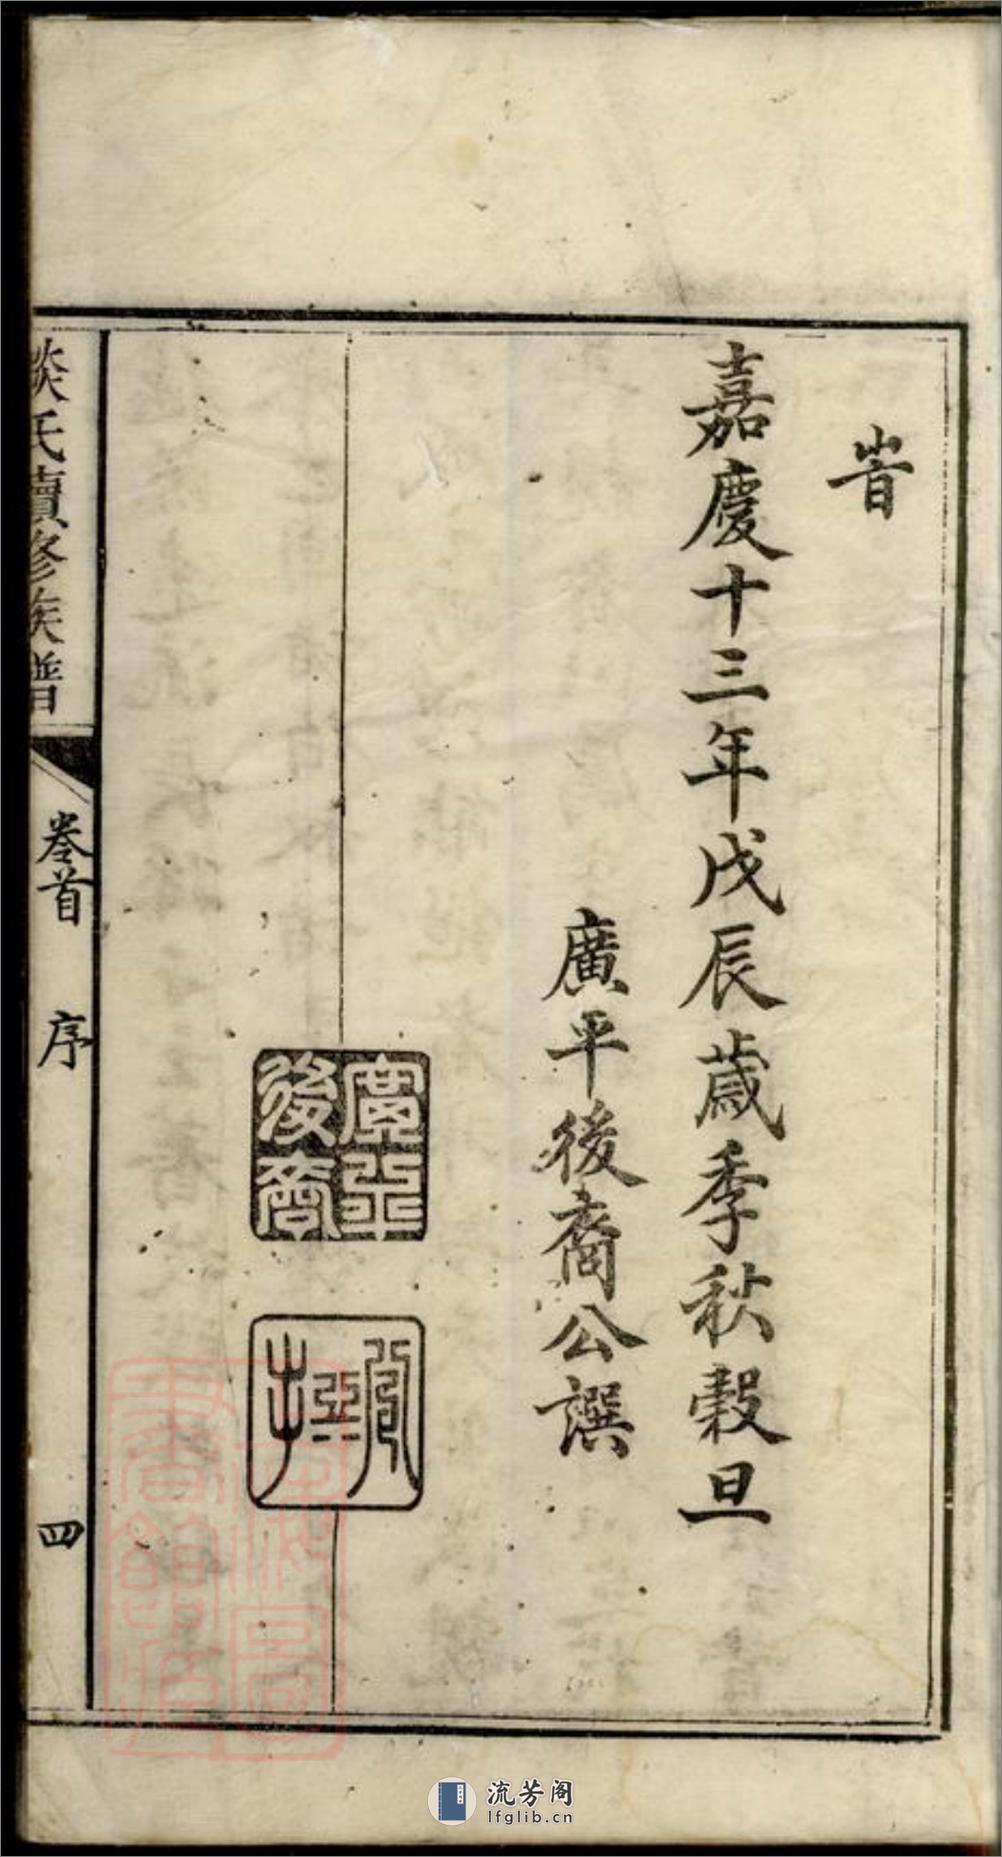 旹
嘉慶十三年戊辰歲季秋穀旦
廣平後裔公譔
廣平後裔
談氏續修族譜
卷首
序
四
流芳阁
lfglib.cn